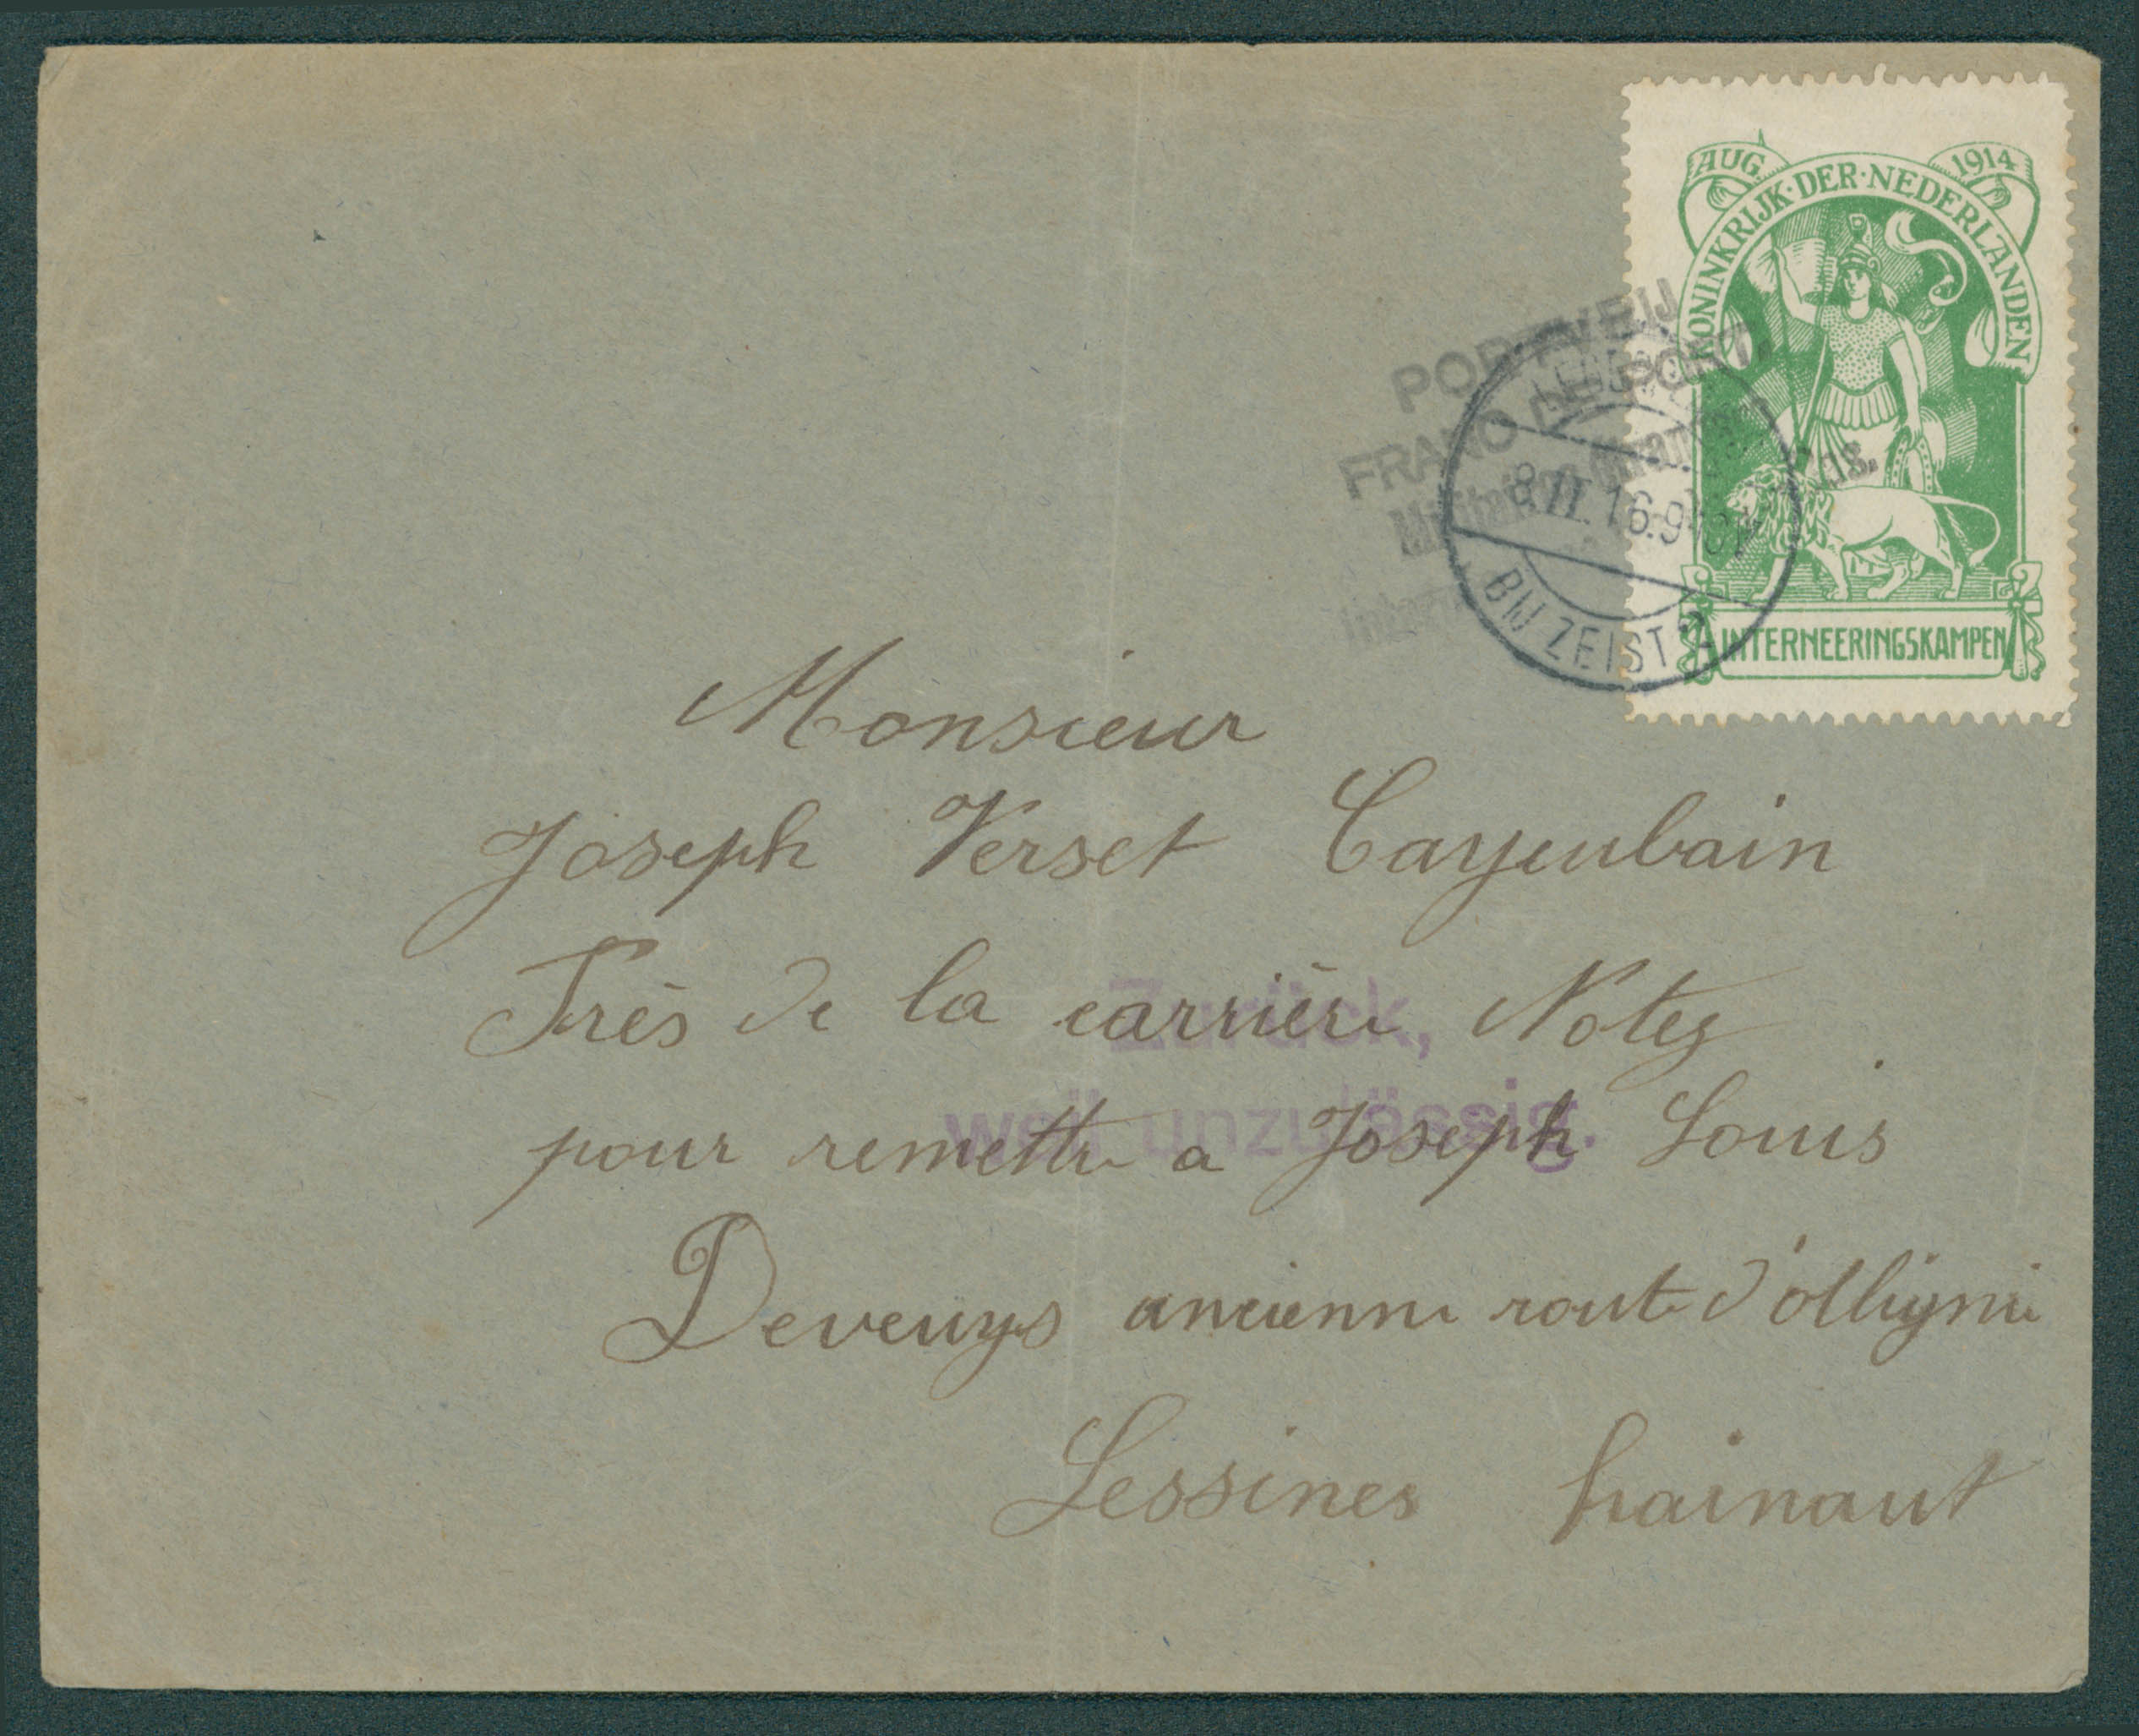 AUG. 1914
KONINKRIJK·DER·NEDERLANDEN
INTERNEERINGSKAMPEN
PORTVRIJ
FRANC DE PORT.
8.II.16.9-10V
BIJ ZEIST 2
Monsieur
Joseph Verset Cayeubain
Près de la carrière Notez
pour remettre a Joseph Louis
Deveuys ancienne route d'ollignie
Lessines hainaut
Zurück,
weil unzulässig.